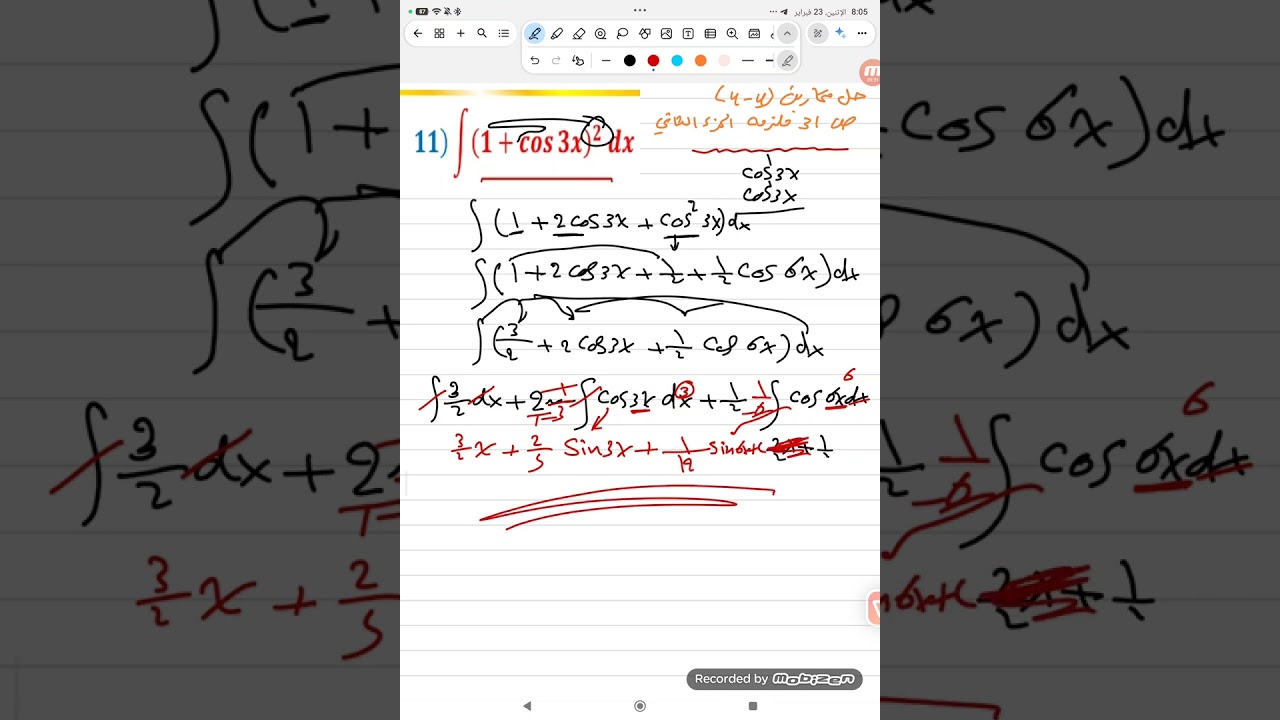 8:05 الإثنين، 23 فبراير
87
حل تمارين (4-4)
ص 31 ملزمة الجزء الثاني
11) ∫(1 + cos 3x)² dx
cos3x
cos3x
∫(1 + 2cos3x + cos² 3x)dx
∫(1 + 2cos3x + 1/2 + 1/2 cos 6x)dx
∫(3/2 + 2cos3x + 1/2 cos 6x)dx
∫3/2 dx + 2 1/3 ∫cos3x dx 3 + 1/2 1/6 ∫cos 6x dx 6
3/2 x + 2/3 sin3x + 1/12 sin6x+c
Recorded by MOBIZEN